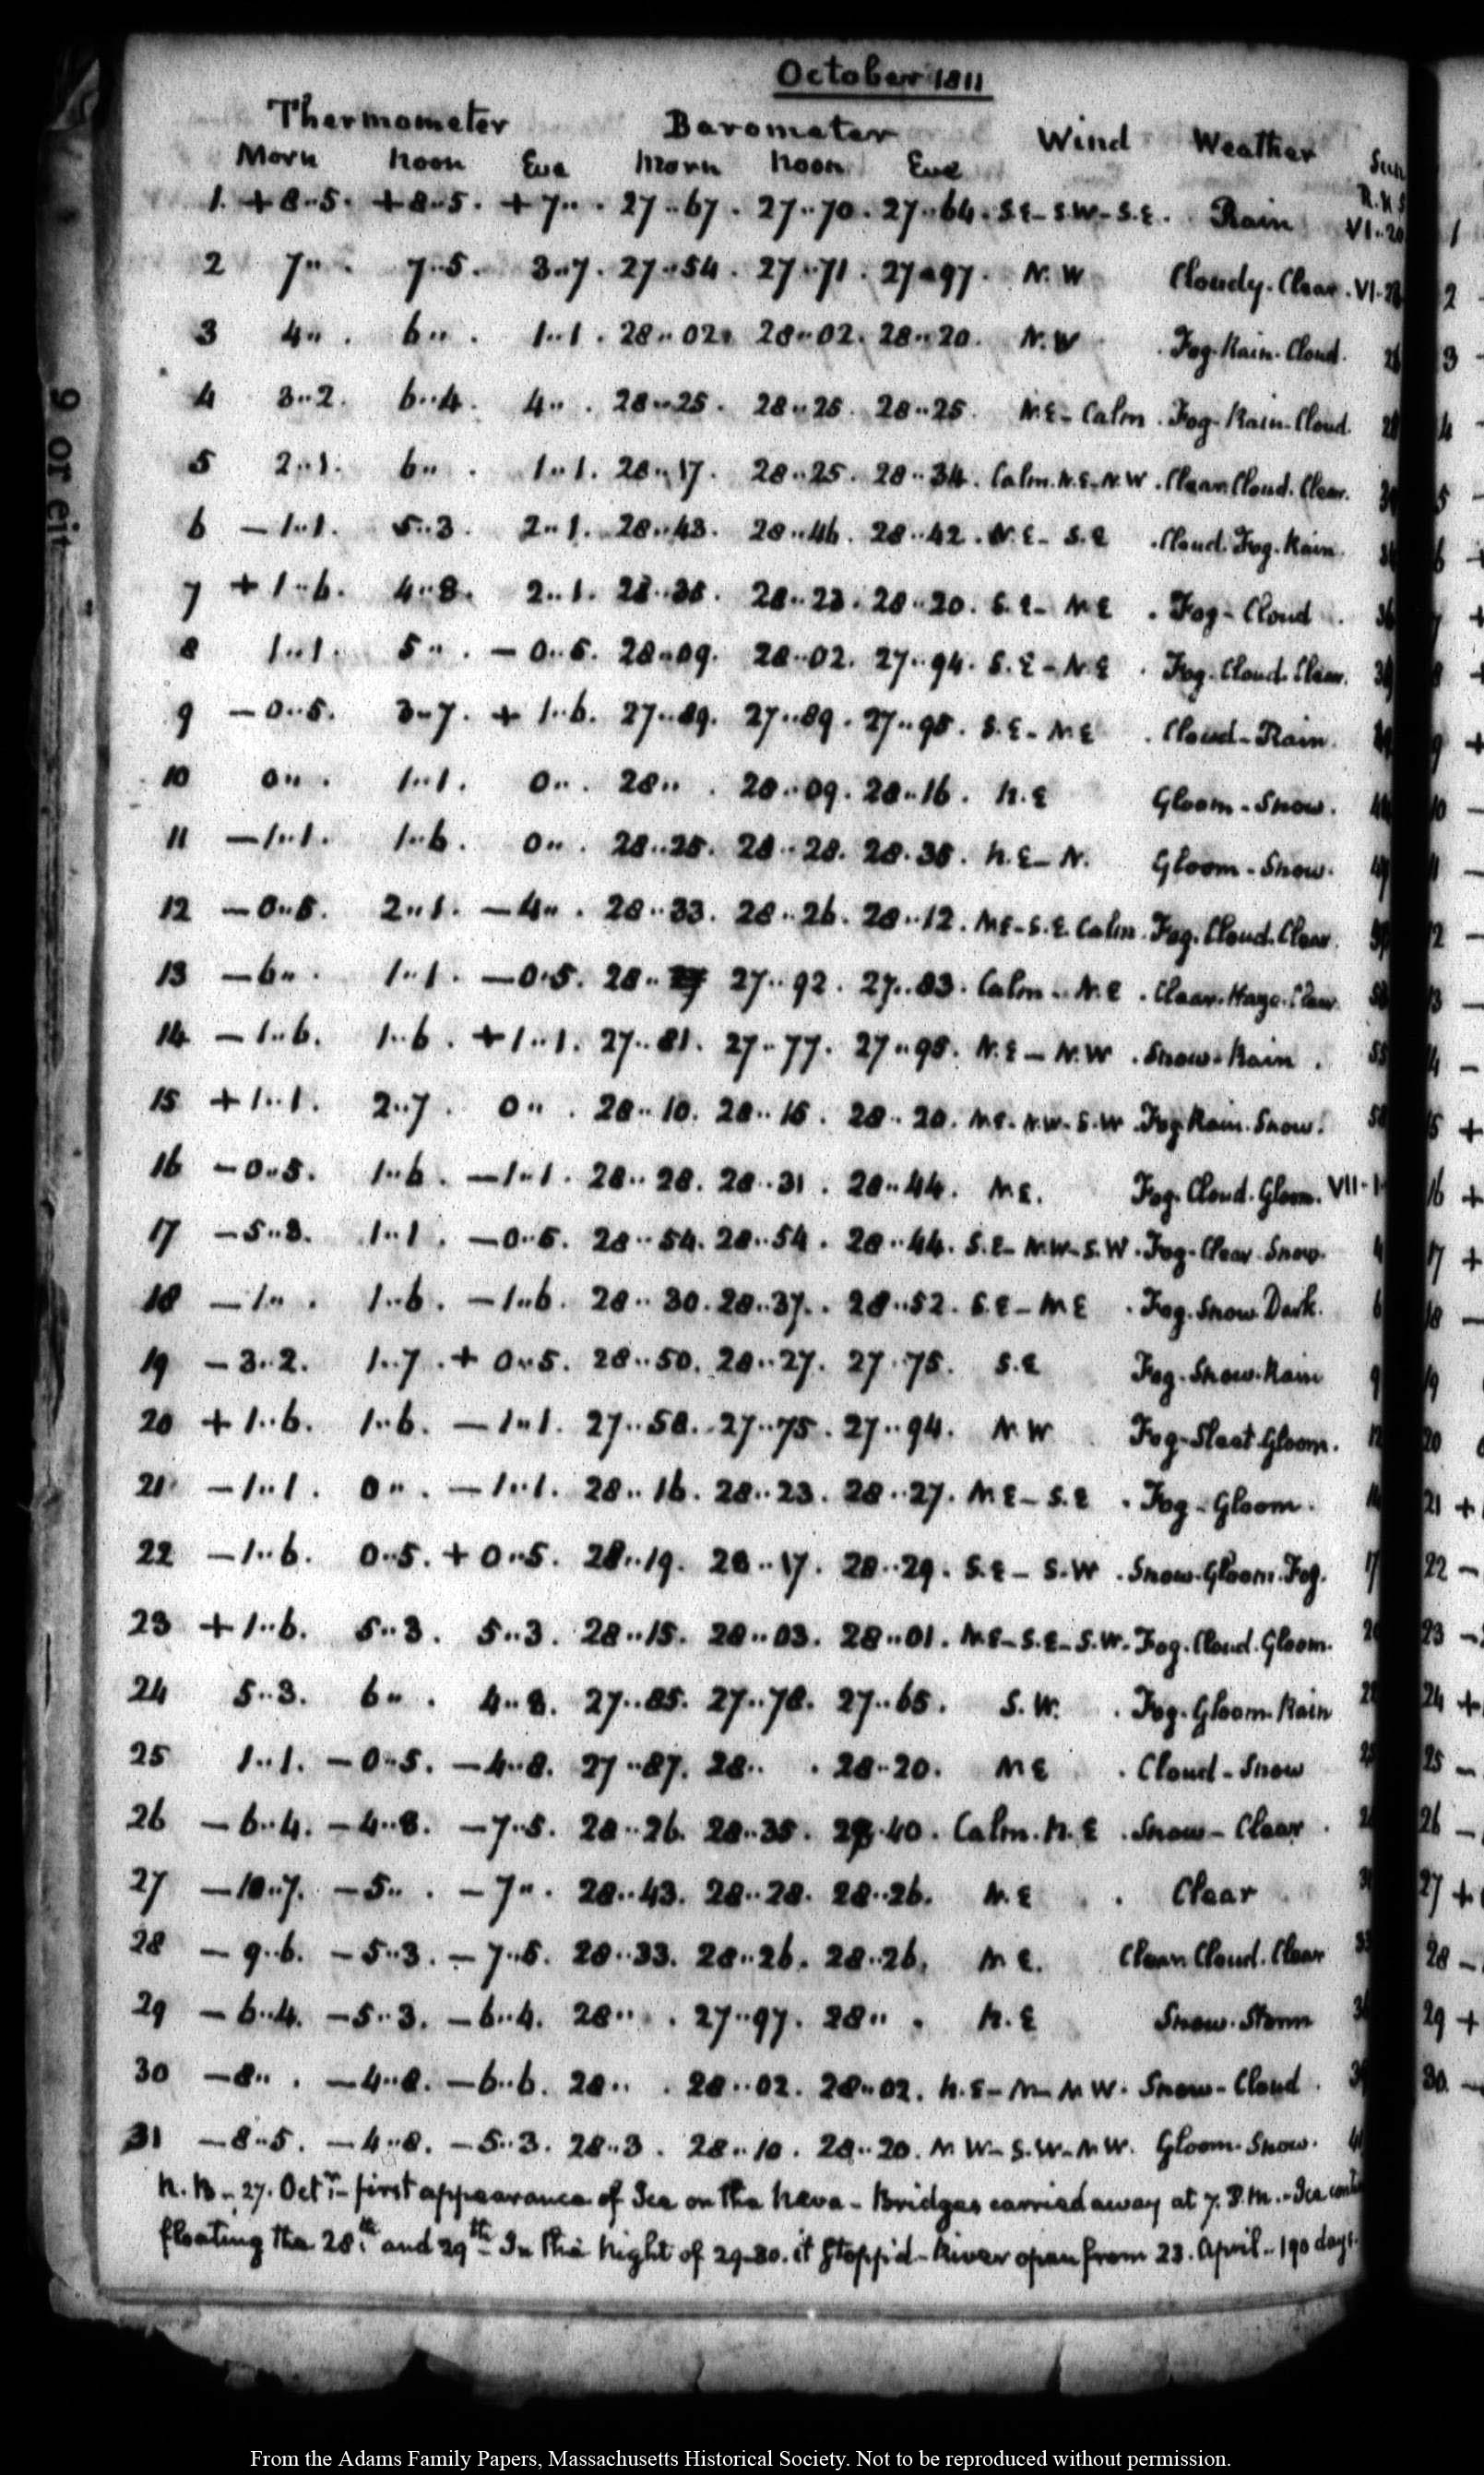 October 1811
Thermometer Barometer Wind Weather Sun
Morn Noon Eve Morn Noon Eve R. &. S
1. +8..5. +8..5. +7.. . 27..67. 27..70. 27..64. S.E-S.W-S.E. Rain VI..20
2 7.. . 7..5. 3..7. 27..54. 27..71. 27..97. N.W Cloudy. Clear. VI..23
3 4.. . 6.. . 1..1. 28..02. 28..02. 28..20. N.W . Fog. Rain. Cloud.
4 3..2. 6..4. 4.. . 28..25. 28..25. 28..25. N.E- Calm. Fog. Rain. Cloud.
5 2..1. 6.. . 1..1. 28..17. 28..25. 28..34. Calm. N.E-N.W. Clear. Cloud. Clear.
6 -1..1. 5..3. 2..1. 28..43. 28..46. 28..42. N.E- S.E . Cloud. Fog. Rain.
7 +1..6. 4..8. 2..1. 28..35. 28..23. 28..20. S.E- N.E . Fog- Cloud .
8 1..1. 5.. . -0..5. 28..09. 28..02. 27..94. S.E-N.E . Fog. Cloud. Clear.
9 -0..5. 3..7. +1..6. 27..89. 27..89. 27..95. S.E- N.E . Cloud-Rain.
10 0.. . 1..1. 0.. . 28.. . 28..09. 28..16. N.E Gloom-Snow.
11 -1..1. 1..6. 0.. . 28..25. 28..28. 28..35. N.E-N. Gloom-Snow.
12 -0..5. 2..1. -4.. . 28..33. 28..26. 28..12. N.E-S.E. Calm. Fog. Cloud. Clear.
13 -6.. . 1..1. -0..5. 28.. 27..92. 27..83. Calm- N.E . Clear. Haze. Clear.
14 -1..6. 1..6. +1..1. 27..81. 27..77. 27..95. N.E- N.W . Snow-Rain .
15 +1..1. 2..7. 0.. . 28..10. 28..15. 28..20. N.E-N.W-S.W. Fog. Rain. Snow.
16 -0..5. 1..6. -1..1. 28..28. 28..31. 28..44. N.E. Fog. Cloud. Gloom. VII.
17 -5..3. 1..1. -0..5. 28..54. 28..54. 28..44. S.E- N.W-S.W. Fog-Clear. Snow.
18 -1.. . 1..6. -1..6. 28..30. 28..37. 28..52. S.E-N.E . Fog. Snow. Dark.
19 -3..2. 1..7. +0..5. 28..50. 28..27. 27..75. S.E Fog. Snow. Rain
20 +1..6. 1..6. -1..1. 27..58. 27..75. 27..94. N.W Fog-Sleet. Gloom.
21 -1..1. 0.. . -1..1. 28..16. 28..23. 28..27. N.E-S.E . Fog-Gloom.
22 -1..6. 0..5. +0..5. 28..19. 28..17. 28..29. S.E- S.W . Snow. Gloom. Fog.
23 +1..6. 5..3. 5..3. 28..15. 28..03. 28..01. N.E-S.E-S.W. Fog. Cloud. Gloom.
24 5..3. 6.. . 4..8. 27..85. 27..78. 27..65. S.W. . Fog. Gloom. Rain
25 1..1. -0..5. -4..8. 27..87. 28.. . 28..20. N.E . Cloud-Snow
26 -6..4. -4..8. -7..5. 28..26. 28..35. 28..40. Calm. N.E . Snow- Clear .
27 -10..7. -5.. . -7.. . 28..43. 28..28. 28..26. N.E . Clear
28 -9..6. -5..3. -7..5. 28..33. 28..26. 28..26. N.E. Clear. Cloud. Clear
29 -6..4. -5..3. -6..4. 28.. . 27..97. 28.. . N.E Snow. Storm
30 -8.. . -4..8. -6..6. 28.. . 28..02. 28..02. N.E-N-N.W. Snow-Cloud .
31 -8..5. -4..8. -5..3. 28..3. 28..10. 28..20. N.W-S.W-N.W. Gloom. Snow.
N.B- 27. Octr- first appearance of Ice on the Neva- Bridges carried away at 7. P.M.-Ice
floating the 28th and 29th- In the Night of 29-30. it stopp'd-River open from 23. April-190 days.
9 or eit
From the Adams Family Papers, Massachusetts Historical Society. Not to be reproduced without permission.